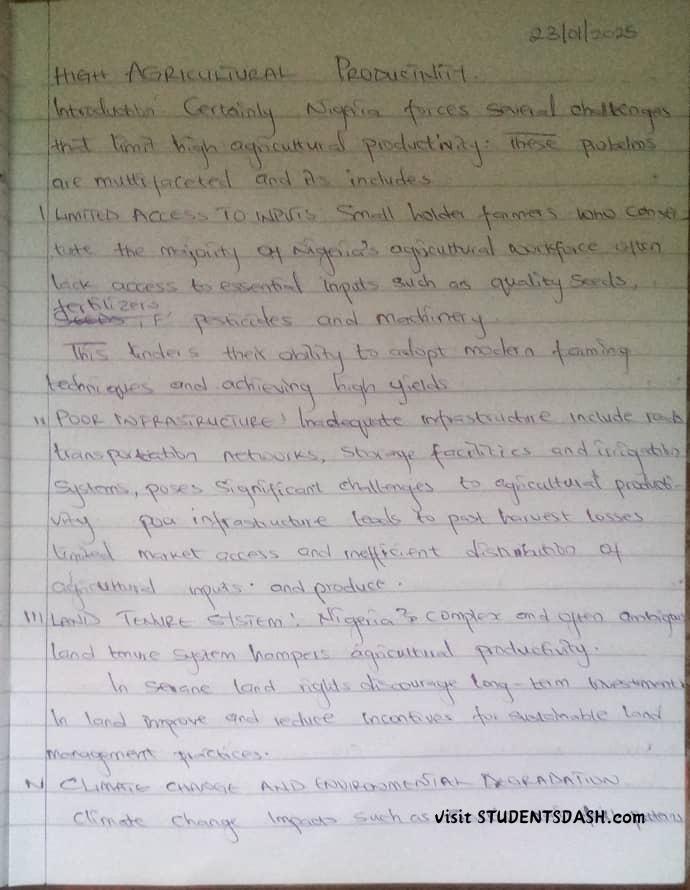 23/01/2025
HIGH AGRICULTURAL PRODUCTIVITY.
Introduction Certainly Nigeria forces several challenges
that limit high agricultural productivity. These problems
are multifaceted and its includes
I LIMITED ACCESS TO INPUTS Small holder farmers who conse
tute the majority of Nigeria's agricultural workforce often
lack access to essential inputs such as quality seeds,
fertilizers
pesticides and machinery
This hinders their ability to adopt modern farming
techniques and achieving high yields
II POOR INFRASTRUCTURE: Inadequate infrastructure include
transportation networks, storage facilities and irrigation
systems, poses significant challenges to agricultural producti-
vity poor infrastructure leads to post harvest losses
limited market access and inefficient distribution of
agricultural inputs. and produce.
III LAND TENURE SYSTEM: Nigeria's complex and often ambigu
land tenure system hampers agricultural productivity.
In secure land rights discourage long-term investment
in land improve and reduce incentives for sustainable land
management practices.
IV CLIMATE CHANGE AND ENVIRONMENTAL DEGRADATION
Climate change impacts such as
visit STUDENTSDASH.com